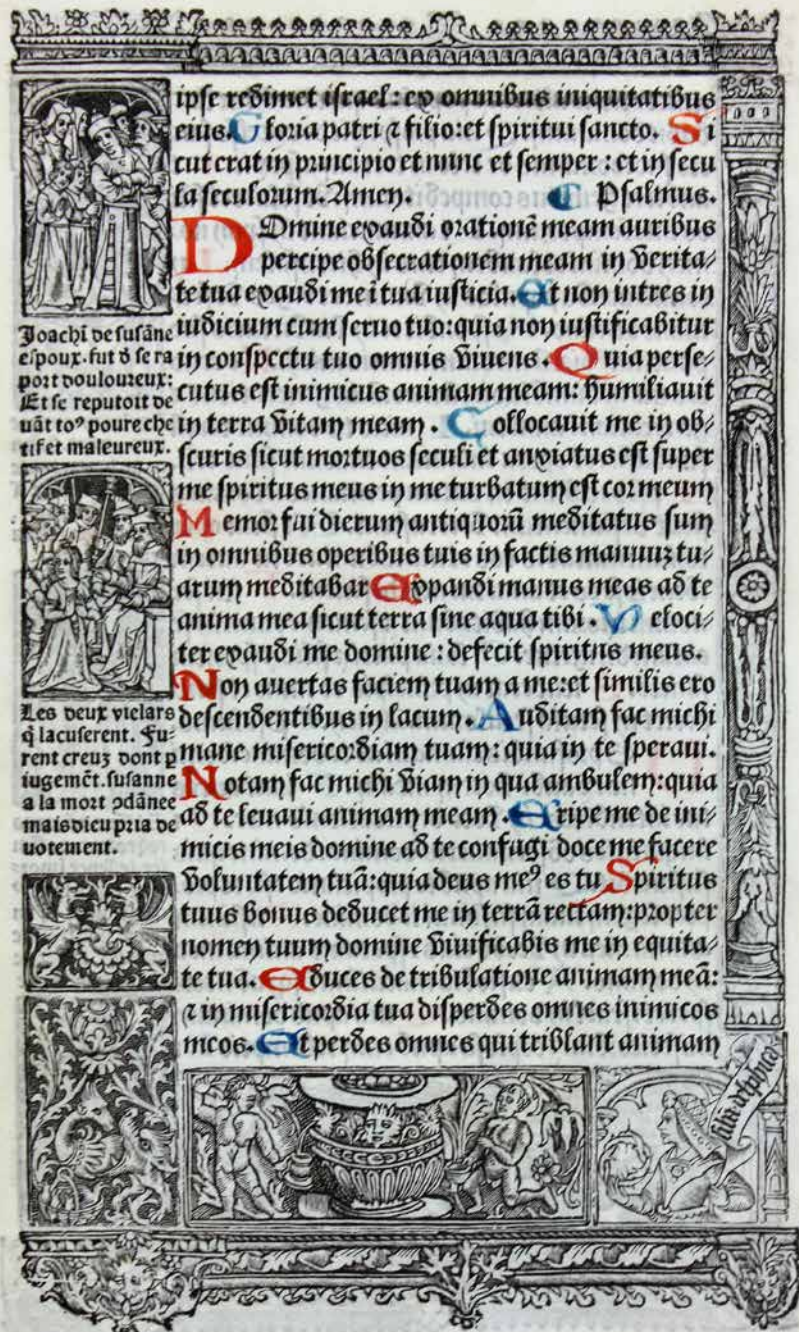 ipse redimet israel: ex omnibus iniquitatibus
eius. Gloria patri ⁊ filio: et spiritui sancto. Si
cut erat in principio et nunc et semper: et in secu
la seculorum. Amen. ¶ Psalmus.
DOmine exaudi orationē meam auribus
percipe obsecrationem meam in verita⸗
te tua exaudi me ī tua iusticia. Et non intres in
iudicium cum seruo tuo: quia non iustificabitur
in conspectu tuo omnis viuens. Quia perse⸗
cutus est inimicus animam meam: humiliauit
in terra vitam meam. Collocauit me in ob⸗
scuris sicut mortuos seculi et anxiatus est super
me spiritus meus in me turbatum est cor meum
Memor fui dierum antiquorū meditatus sum
in omnibus operibus tuis in factis manuuʒ tu⸗
arum meditabar Expandi manus meas ad te
anima mea sicut terra sine aqua tibi. Veloci⸗
ter exaudi me domine: defecit spiritus meus.
Non auertas faciem tuam a me: et similis ero
descendentibus in lacum. Auditam fac michi
mane misericordiam tuam: quia in te speraui.
Notam fac michi viam in qua ambulem: quia
ad te leuaui animam meam. Eripe me de ini⸗
micis meis domine ad te confugi doce me facere
voluntatem tuā: quia deus meꝰ es tu Spiritus
tuus bonus deducet me in terrā rectam: propter
nomen tuum domine viuificabis me in equita⸗
te tua. Educes de tribulatione animam meā:
⁊ in misericordia tua disperdes omnes inimicos
meos. Et perdes omnes qui triblant animam
Joachī de susāne
espoux. fut d̄ se ra
port douloureux:
Et se reputoit de
uāt toꝰ poure che
tif et maleureux.
Les deux vielars
q̄ lacuserent. Fu⸗
rent creuʒ dont ꝑ
iugemēt. susanne
a la mort ꝯdānee
mais dieu pria de
uotement.